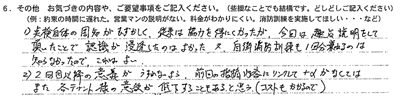 6. その他 お気づきの内容や、ご要望事項をご記入ください。(些細なことでも結構です。どしどしご記入ください)
(例:約束の時間に遅れた。営業マンの説明がない。料金がわかりにくい。消防訓練を実施してほしい・・・など)
1) 点検自体の周知がむずかしく、従来は協力を得にくかったが、今回は趣旨説明をして
頂いたことで 認識が浸透したのはよかった。又、自衛消防訓練も1回分兼ねるのは
知らなかったので、これは良い。
2) 2回目以降の意義が うすれるよう、前回の指摘内容にリンクして+αがないと
また 各テナント様の意欲が低下することもあると思う(コストもかかるので)